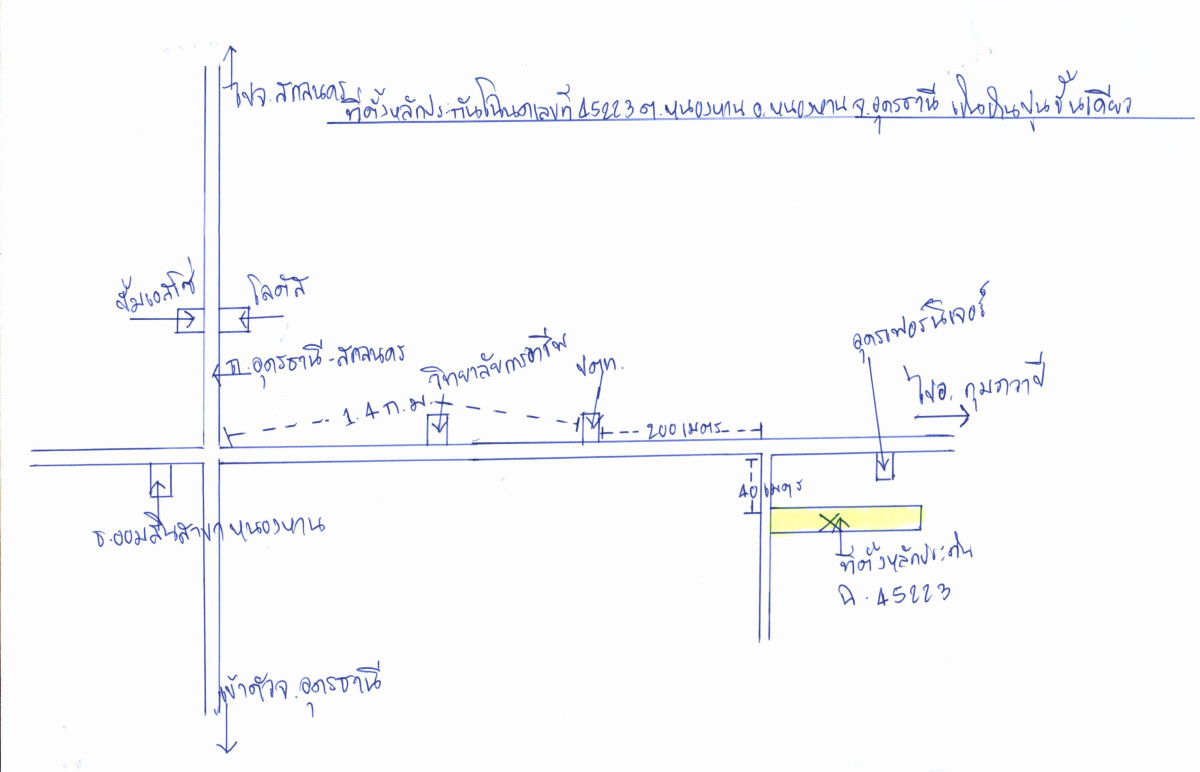 ไปจ.สกลนคร
ที่ตั้งหลักประกันโฉนดเลขที่ 45223 ต.หนองหาน อ.หนองหาน จ.อุดรธานี เป็นบ้านปูนชั้นเดียว
ปั๊มเอสโซ่
โลตัส
ถ.อุดรธานี-สกลนคร
วิทยาลัยการอาชีพ
ปตท.
อุดรเฟอร์นิเจอร์
ไปอ.กุมภวาปี
1.4 ก.ม.
200 เมตร
40 เมตร
ธ.ออมสินสาขาหนองหาน
ที่ตั้งหลักประกัน
ฉ.45223
เข้าตัวจ.อุดรธานี